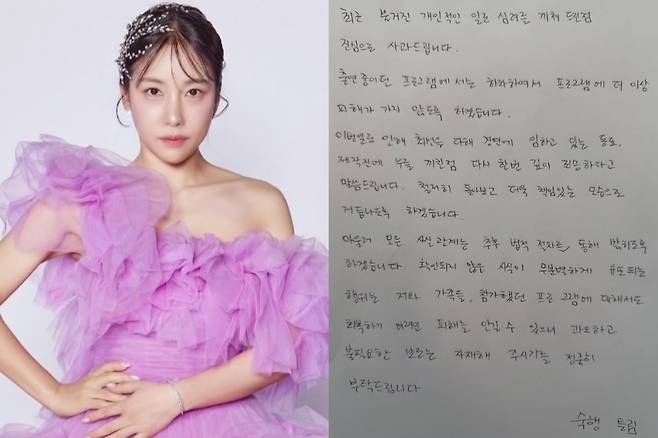 최근 불거진 개인적인 일로 심려를 끼쳐 드린점
진심으로 사과드립니다.
출연중이던 프로그램에서는 하차하여서 프로그램에 더 이상
피해가 가지 않도록 하겠습니다.
이번일로 인해 최선을 다해 경연에 임하고 있는 동료,
제작진에 누를 끼친점 다시 한번 깊이 죄송하다고
말씀드립니다. 철저히 돌아보고 더욱 책임있는 모습으로
거듭나도록 하겠습니다.
아울러 모든 사실 관계는 추후 법적 절차를 통해 밝히도록
하겠습니다 확인되지 않은 사실이 무분별하게 유포되는
행위는 저와 가족들, 참가했던 프로그램에 대해서도
회복하기 어려운 피해를 안길 수 있으니 과도하고
불필요한 보도는 자제해 주시기를 정중히
부탁드립니다
숙행 드림